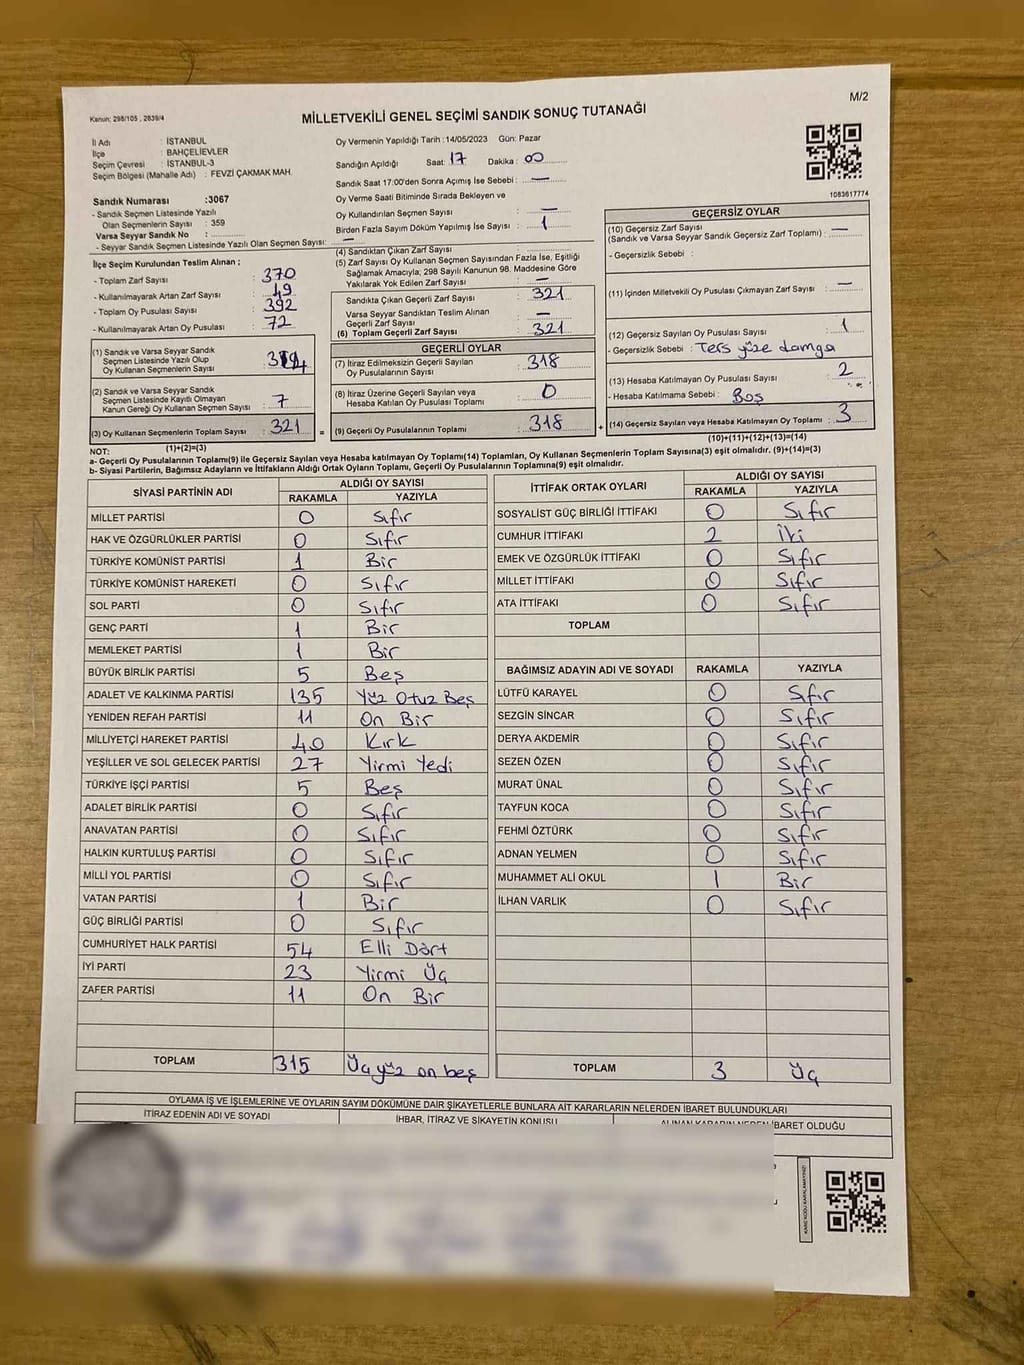 M/2
Kanun: 298/105 , 2839/4
MİLLETVEKİLİ GENEL SEÇİMİ SANDIK SONUÇ TUTANAĞI
İl Adı : İSTANBUL
İlçe : BAHÇELİEVLER
Seçim Çevresi : İSTANBUL-3
Seçim Bölgesi (Mahalle Adı) : FEVZİ ÇAKMAK MAH.
Sandık Numarası :3067
- Sandık Seçmen Listesinde Yazılı
Olan Seçmenlerin Sayısı : 359
Varsa Seyyar Sandık No :
- Seyyar Sandık Seçmen Listesinde Yazılı Olan Seçmen Sayısı: —
Oy Vermenin Yapıldığı Tarih : 14/05/2023 Gün: Pazar
Sandığın Açıldığı Saat: 17 Dakika : 00
Sandık Saat 17:00'den Sonra Açımış İse Sebebi : —
Oy Verme Saati Bitiminde Sırada Bekleyen ve
Oy Kullandırılan Seçmen Sayısı : —
Birden Fazla Sayım Döküm Yapılmış İse Sayısı : 1
1083617774
İlçe Seçim Kurulundan Teslim Alınan ;
- Toplam Zarf Sayısı : 370
- Kullanılmayarak Artan Zarf Sayısı : 49
- Toplam Oy Pusulası Sayısı : 392
- Kullanılmayarak Artan Oy Pusulası : 72
(1) Sandık ve Varsa Seyyar Sandık
Seçmen Listesinde Yazılı Olup
Oy Kullanan Seçmenlerin Sayısı :
(2) Sandık ve Varsa Seyyar Sandık
Seçmen Listesinde Kayıtlı Olmayan
Kanun Gereği Oy Kullanan Seçmen Sayısı : 7
(3) Oy Kullanan Seçmenlerin Toplam Sayısı : 321 =
(1)+(2)=(3)
(4) Sandıktan Çıkan Zarf Sayısı :
(5) Zarf Sayısı Oy Kullanan Seçmen Sayısından Fazla İse, Eşitliği
Sağlamak Amacıyla; 298 Sayılı Kanunun 98. Maddesine Göre
Yakılarak Yok Edilen Zarf Sayısı : —
Sandıkta Çıkan Geçerli Zarf Sayısı : 321
Varsa Seyyar Sandıktan Teslim Alınan
Geçerli Zarf Sayısı : —
(6) Toplam Geçerli Zarf Sayısı : 321
GEÇERLİ OYLAR
(7) İtiraz Edilmeksizin Geçerli Sayılan
Oy Pusulalarının Sayısı : 318
(8) İtiraz Üzerine Geçerli Sayılan veya
Hesaba Katılan Oy Pusulası Toplamı : 0
(9) Geçerli Oy Pusulalarının Toplamı : 318 +
GEÇERSİZ OYLAR
(10) Geçersiz Zarf Sayısı
(Sandık ve Varsa Seyyar Sandık Geçersiz Zarf Toplamı) : —
- Geçersizlik Sebebi :
(11) İçinden Milletvekili Oy Pusulası Çıkmayan Zarf Sayısı : —
(12) Geçersiz Sayılan Oy Pusulası Sayısı : 1
- Geçersizlik Sebebi : Ters yüze damga
(13) Hesaba Katılmayan Oy Pusulası Sayısı : 2
- Hesaba Katılmama Sebebi : Boş
(14) Geçersiz Sayılan veya Hesaba Katılmayan Oy Toplamı : 3
(10)+(11)+(12)+(13)=(14)
NOT:
a- Geçerli Oy Pusulasının Toplamı(9) ile Geçersiz Sayılan veya Hesaba katılmayan Oy Toplamı(14) Toplamları, Oy Kullanan Seçmenlerin Toplam Sayısına(3) eşit olmalıdır. (9)+(14)=(3)
b- Siyasi Partilerin, Bağımsız Adayların ve İttifakların Aldığı Ortak Oyların Toplamı, Geçerli Oy Pusulalarının Toplamına(9) eşit olmalıdır.
SİYASİ PARTİNİN ADI ALDIĞI OY SAYISI
RAKAMLA YAZIYLA
MİLLET PARTİSİ 0 Sıfır
HAK VE ÖZGÜRLÜKLER PARTİSİ 0 Sıfır
TÜRKİYE KOMÜNİST PARTİSİ 1 Bir
TÜRKİYE KOMÜNİST HAREKETİ 0 Sıfır
SOL PARTİ 0 Sıfır
GENÇ PARTİ 1 Bir
MEMLEKET PARTİSİ 1 Bir
BÜYÜK BİRLİK PARTİSİ 5 Beş
ADALET VE KALKINMA PARTİSİ 135 Yüz Otuz Beş
YENİDEN REFAH PARTİSİ 11 On Bir
MİLLİYETÇİ HAREKET PARTİSİ 40 Kırk
YEŞİLLER VE SOL GELECEK PARTİSİ 27 Yirmi Yedi
TÜRKİYE İŞÇİ PARTİSİ 5 Beş
ADALET BİRLİK PARTİSİ 0 Sıfır
ANAVATAN PARTİSİ 0 Sıfır
HALKIN KURTULUŞ PARTİSİ 0 Sıfır
MİLLİ YOL PARTİSİ 0 Sıfır
VATAN PARTİSİ 1 Bir
GÜÇ BİRLİĞİ PARTİSİ 0 Sıfır
CUMHURİYET HALK PARTİSİ 54 Elli Dört
İYİ PARTİ 23 Yirmi Üç
ZAFER PARTİSİ 11 On Bir
TOPLAM 315 Üçyüz on beş
İTTİFAK ORTAK OYLARI ALDIĞI OY SAYISI
RAKAMLA YAZIYLA
SOSYALİST GÜÇ BİRLİĞİ İTTİFAKI 0 Sıfır
CUMHUR İTTİFAKI 2 İki
EMEK VE ÖZGÜRLÜK İTTİFAKI 0 Sıfır
MİLLET İTTİFAKI 0 Sıfır
ATA İTTİFAKI 0 Sıfır
TOPLAM
BAĞIMSIZ ADAYIN ADI VE SOYADI RAKAMLA YAZIYLA
LÜTFÜ KARAYEL 0 Sıfır
SEZGİN SİNCAR 0 Sıfır
DERYA AKDEMİR 0 Sıfır
SEZEN ÖZEN 0 Sıfır
MURAT ÜNAL 0 Sıfır
TAYFUN KOCA 0 Sıfır
FEHMİ ÖZTÜRK 0 Sıfır
ADNAN YELMEN 0 Sıfır
MUHAMMET ALİ OKUL 1 Bir
İLHAN VARLIK 0 Sıfır
TOPLAM 3 Üç
OYLAMA İŞ VE İŞLEMLERİNE VE OYLARIN SAYIM DÖKÜMÜNE DAİR ŞİKAYETLERLE BUNLARA AİT KARARLARIN NELERDEN İBARET BULUNDUKLARI
İTİRAZ EDENİN ADI VE SOYADI İHBAR, İTİRAZ VE ŞİKAYETİN KONUSU ALINAN KARARIN NEDEN İBARET OLDUĞU